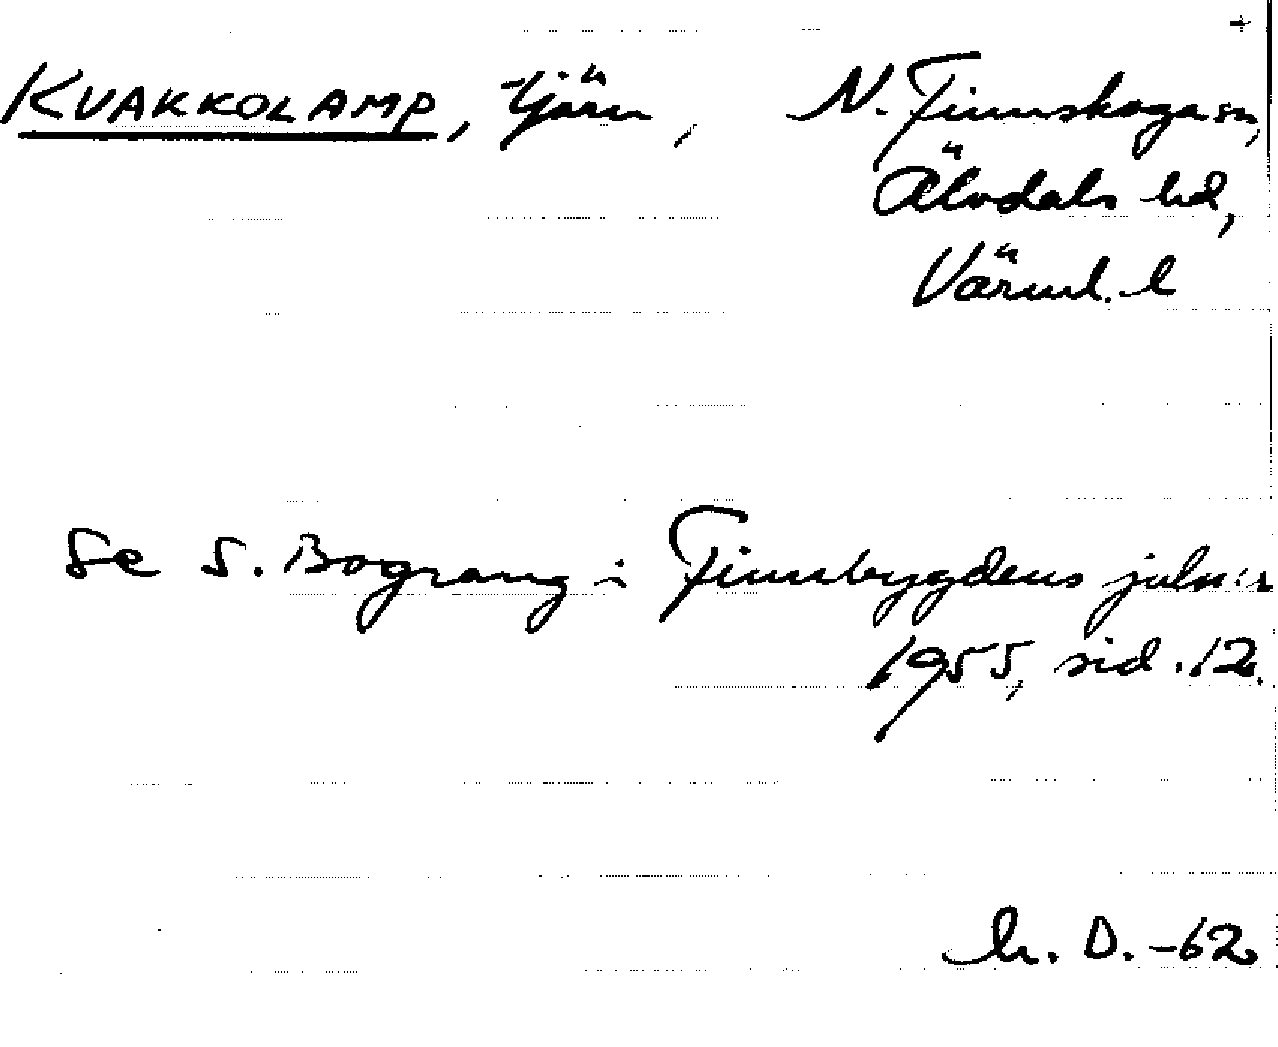 +
KVAKKOLAMP, tjärn, N. Finnskoga sn,
Älvdals hd,
Värml. l
Se S. Bograng i Finnbygdens julnr
1955, sid. 12.
h. D. -62